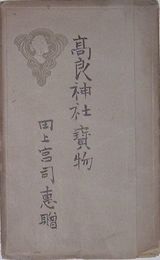 高良神社寶物
田上宮司惠贈